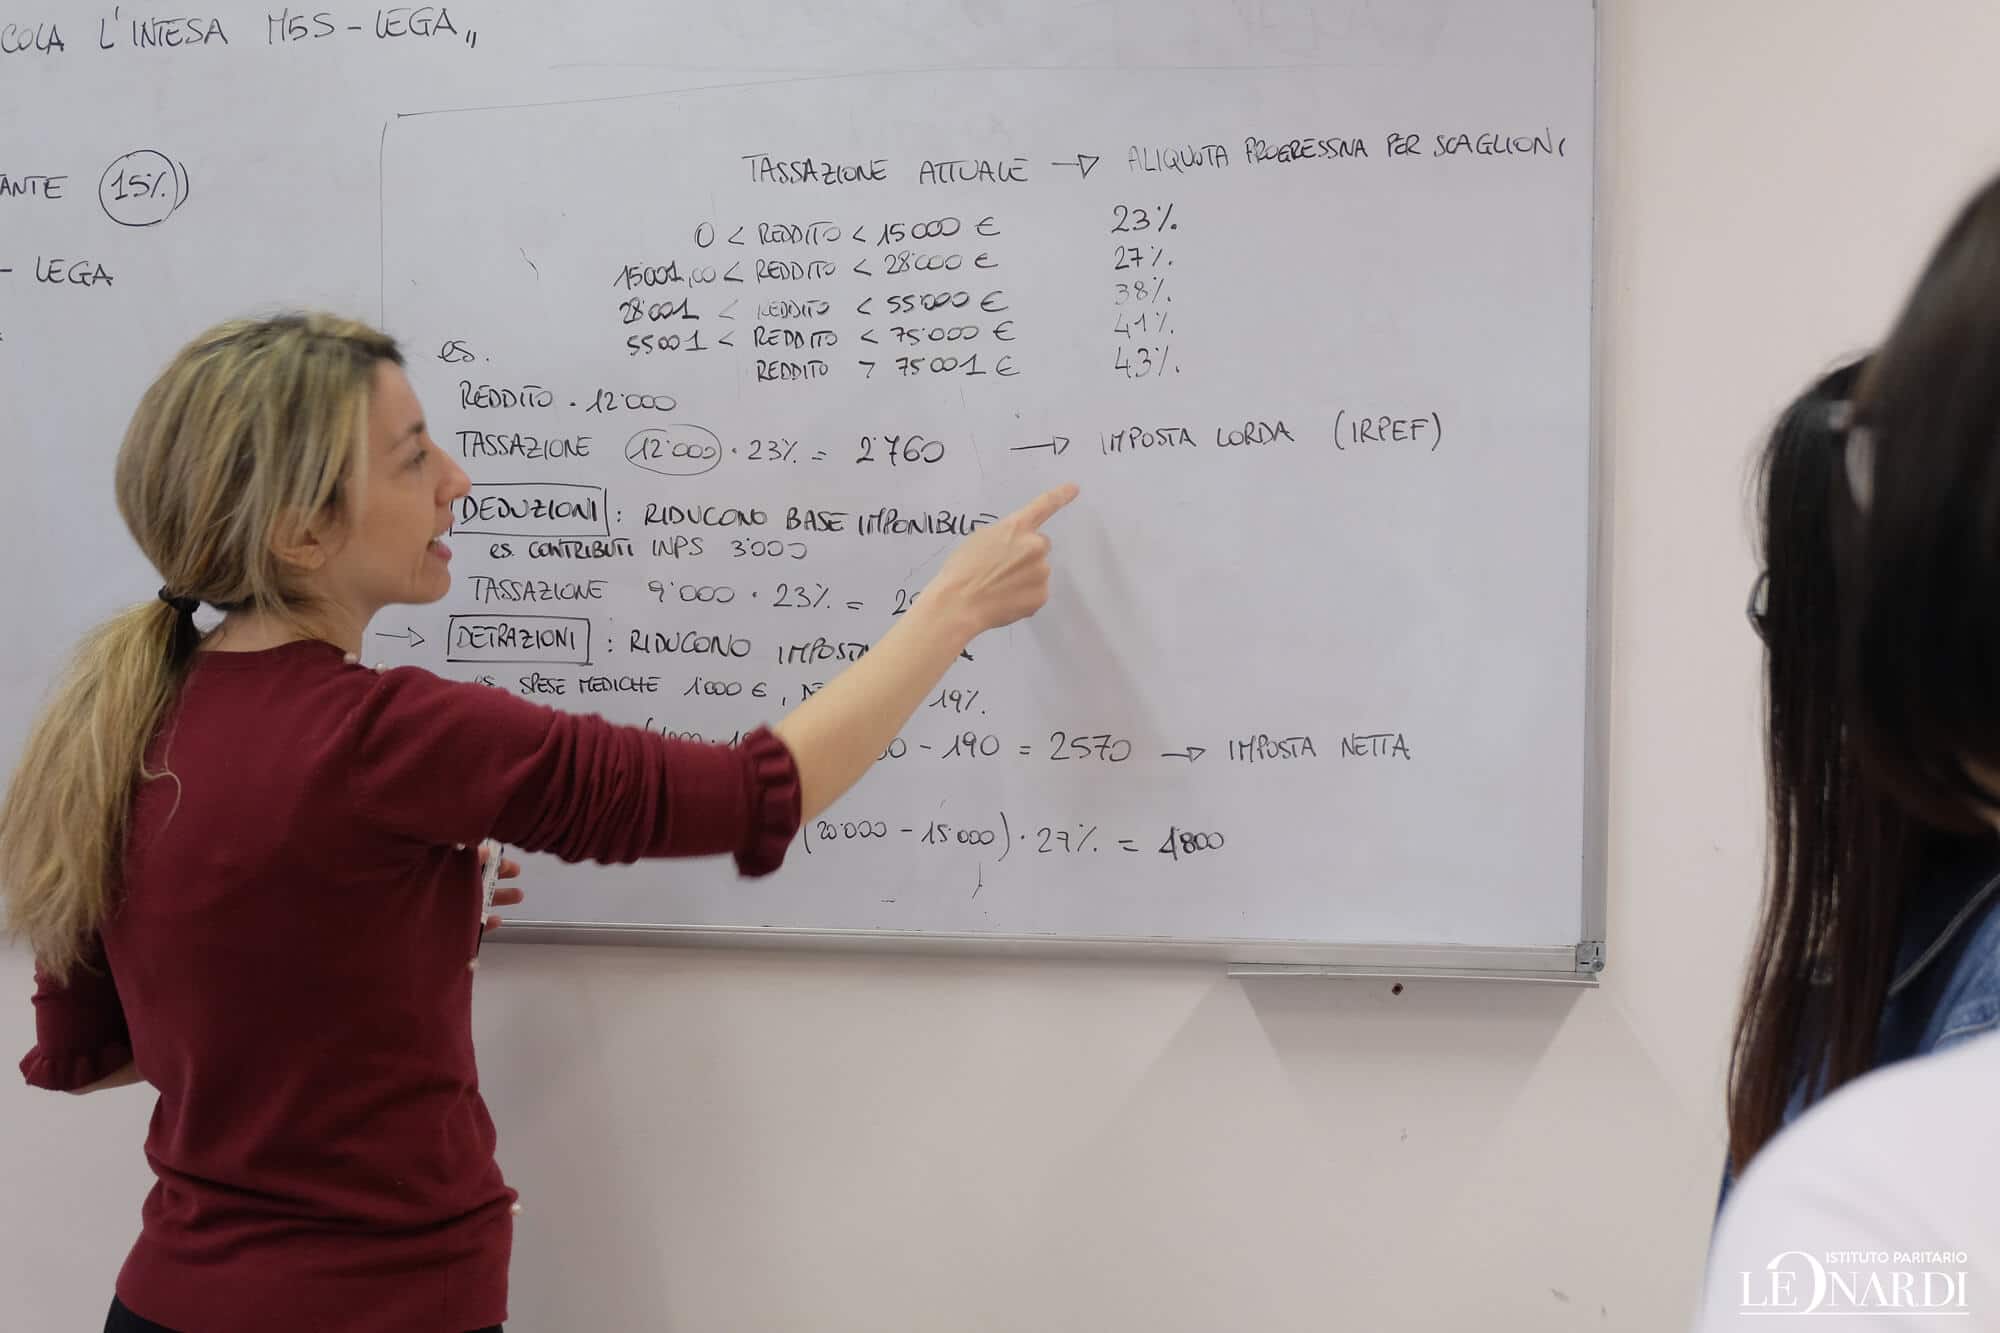 COLA L'INTESA M5S - LEGA„
ANTE 15%
- LEGA
TASSAZIONE ATTUALE → ALIQUOTA PROGRESSIVA PER SCAGLIONI
0 < REDDITO < 15000 € 23%
15001,00 < REDDITO < 28'000 € 27%
28'001 < REDDITO < 55'000 € 38%
55001 < REDDITO < 75'000 € 41%
REDDITO > 75001 € 43%
es.
REDDITO . 12'000
TASSAZIONE 12'000 . 23% = 2'760 → IMPOSTA LORDA (IRPEF)
DEDUZIONI : RIDUCONO BASE IMPONIBILE
es. CONTRIBUTI INPS 3'000
TASSAZIONE 9'000 . 23% = 2
→ DETRAZIONI : RIDUCONO IMPOSTA
es. SPESE MEDICHE 1'000 €, 19%
- 190 = 2570 → IMPOSTA NETTA
(20'000 - 15'000) . 27% = 4800
ISTITUTO PARITARIO
LEONARDI